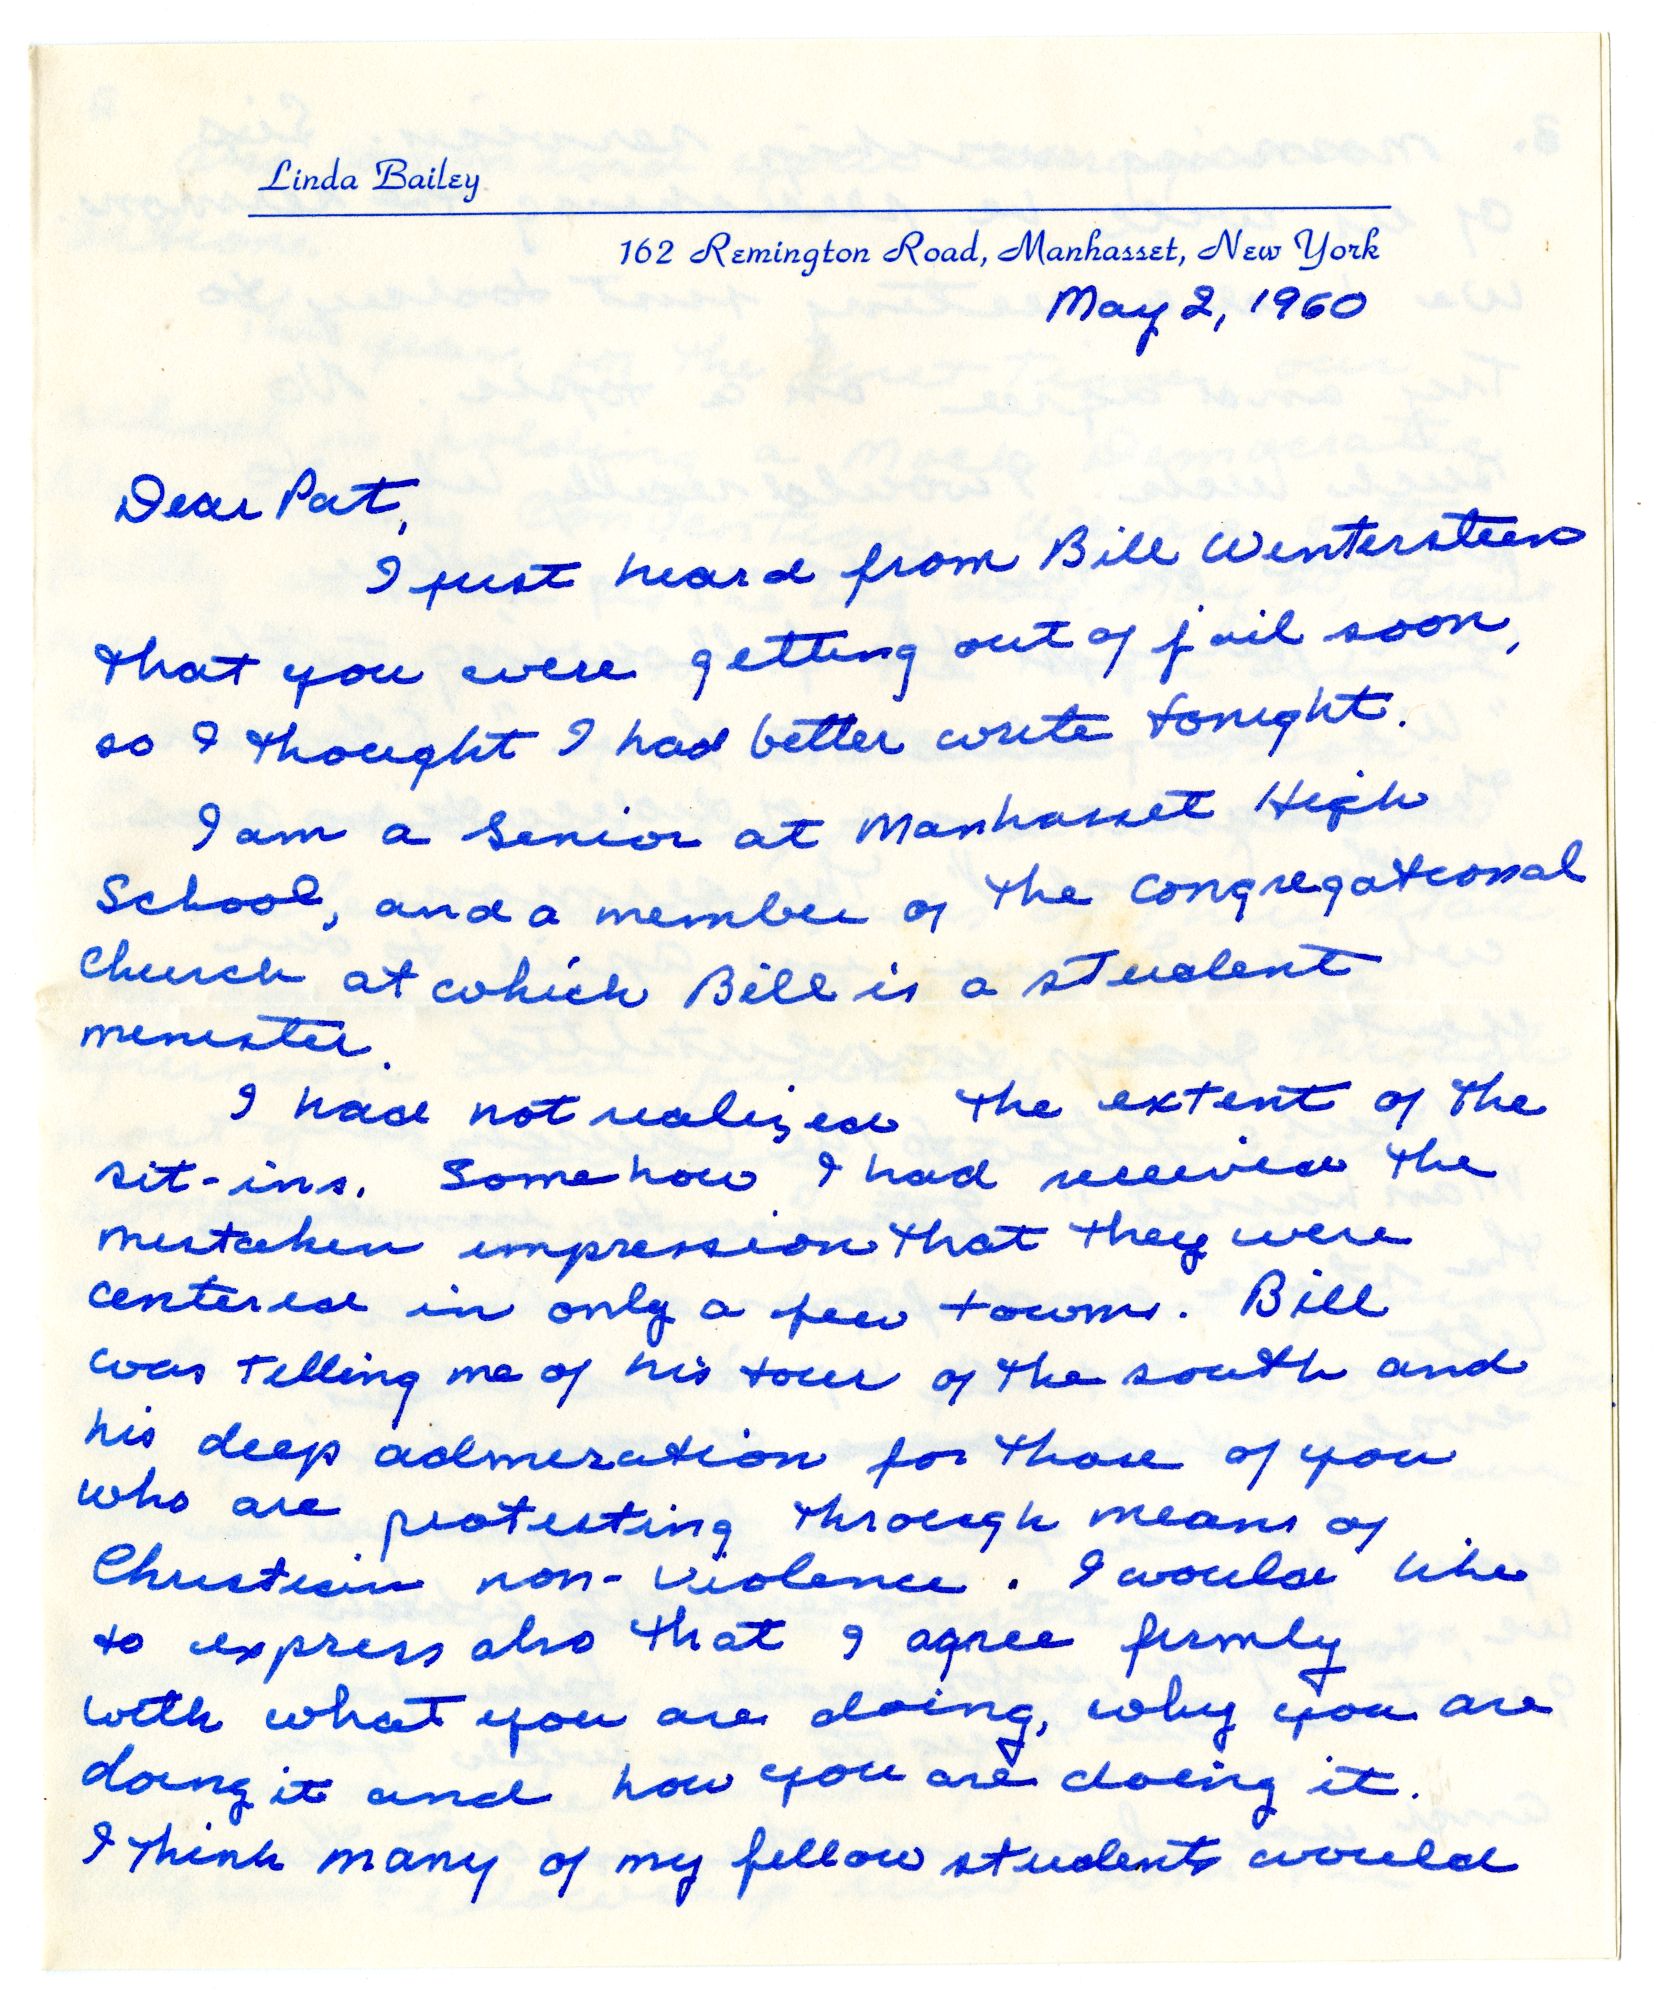 Linda Bailey
162 Remington Road, Manhasset, New York
May 2, 1960
Dear Pat,
I just heard from Bill Wintersteen
that you were getting out of jail soon,
so I thought I had better write tonight.
I am a Senior at Manhasset High
School, and a member of the Congregational
Church at which Bill is a student
minister.
I had not realized the extent of the
sit-ins. Somehow I had received the
mistaken impression that they were
centered in only a few towns. Bill
was telling me of his tour of the south and
his deep admiration for those of you
who are protesting through means of
Christian non-violence. I would like
to express also that I agree firmly
with what you are doing, why you are
doing it and how you are doing it.
I think many of my fellow students would